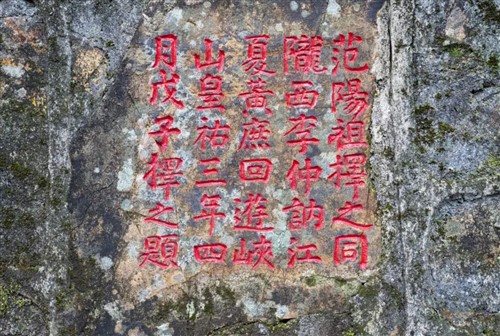 范陽祖擇之同
隴西李仲訥江
夏黃庶回遊峽
山皇祐三年四
月戊子擇之題